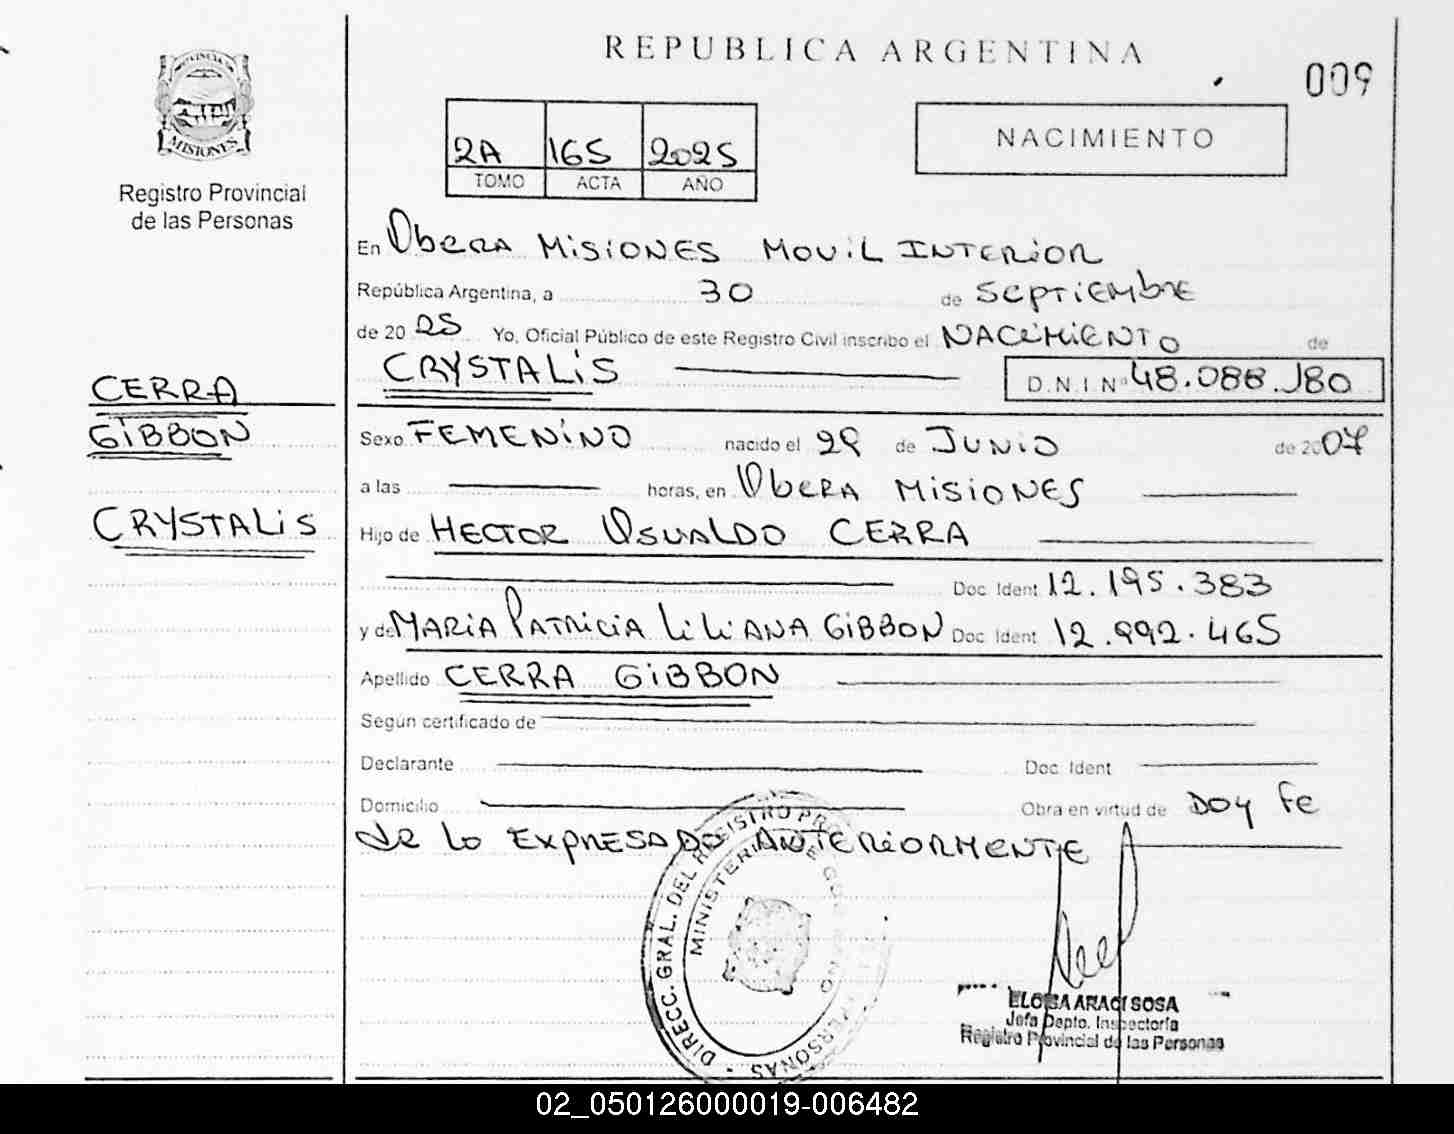 REPUBLICA ARGENTINA
009
MISIONES
Registro Provincial
de las Personas
2A 165 2025
TOMO ACTA AÑO
NACIMIENTO
En Obera Misiones Movil Interior
República Argentina, a 30 de Septiembre
de 20 25 Yo, Oficial Público de este Registro Civil inscribo el NACIMIENTO de
CRYSTALiS D.N.I. Nº 48.088.180
CERRA
GiBBON
CRYSTALiS
Sexo FEMENiNO nacido el 29 de JUNiO de 2007
a las horas, en Obera Misiones
Hijo de HECTOR OSVALDO CERRA
Doc. Ident. 12.195.383
y de MARiA PATRiCiA LiLiANA GiBBON Doc. Ident. 12.992.465
Apellido CERRA GiBBON
Según certificado de
Declarante Doc. Ident.
Domicilio Obra en virtud de Doy fe
de lo EXPRESADO ANTERIORMENTE
DIRECC. GRAL. DEL REGISTRO PERSONAS
MINISTERIO DE GOBIERNO
ELOISA ARACI SOSA
Jefa Depto. Inspectoría
Registro Provincial de las Personas
02_050126000019-006482